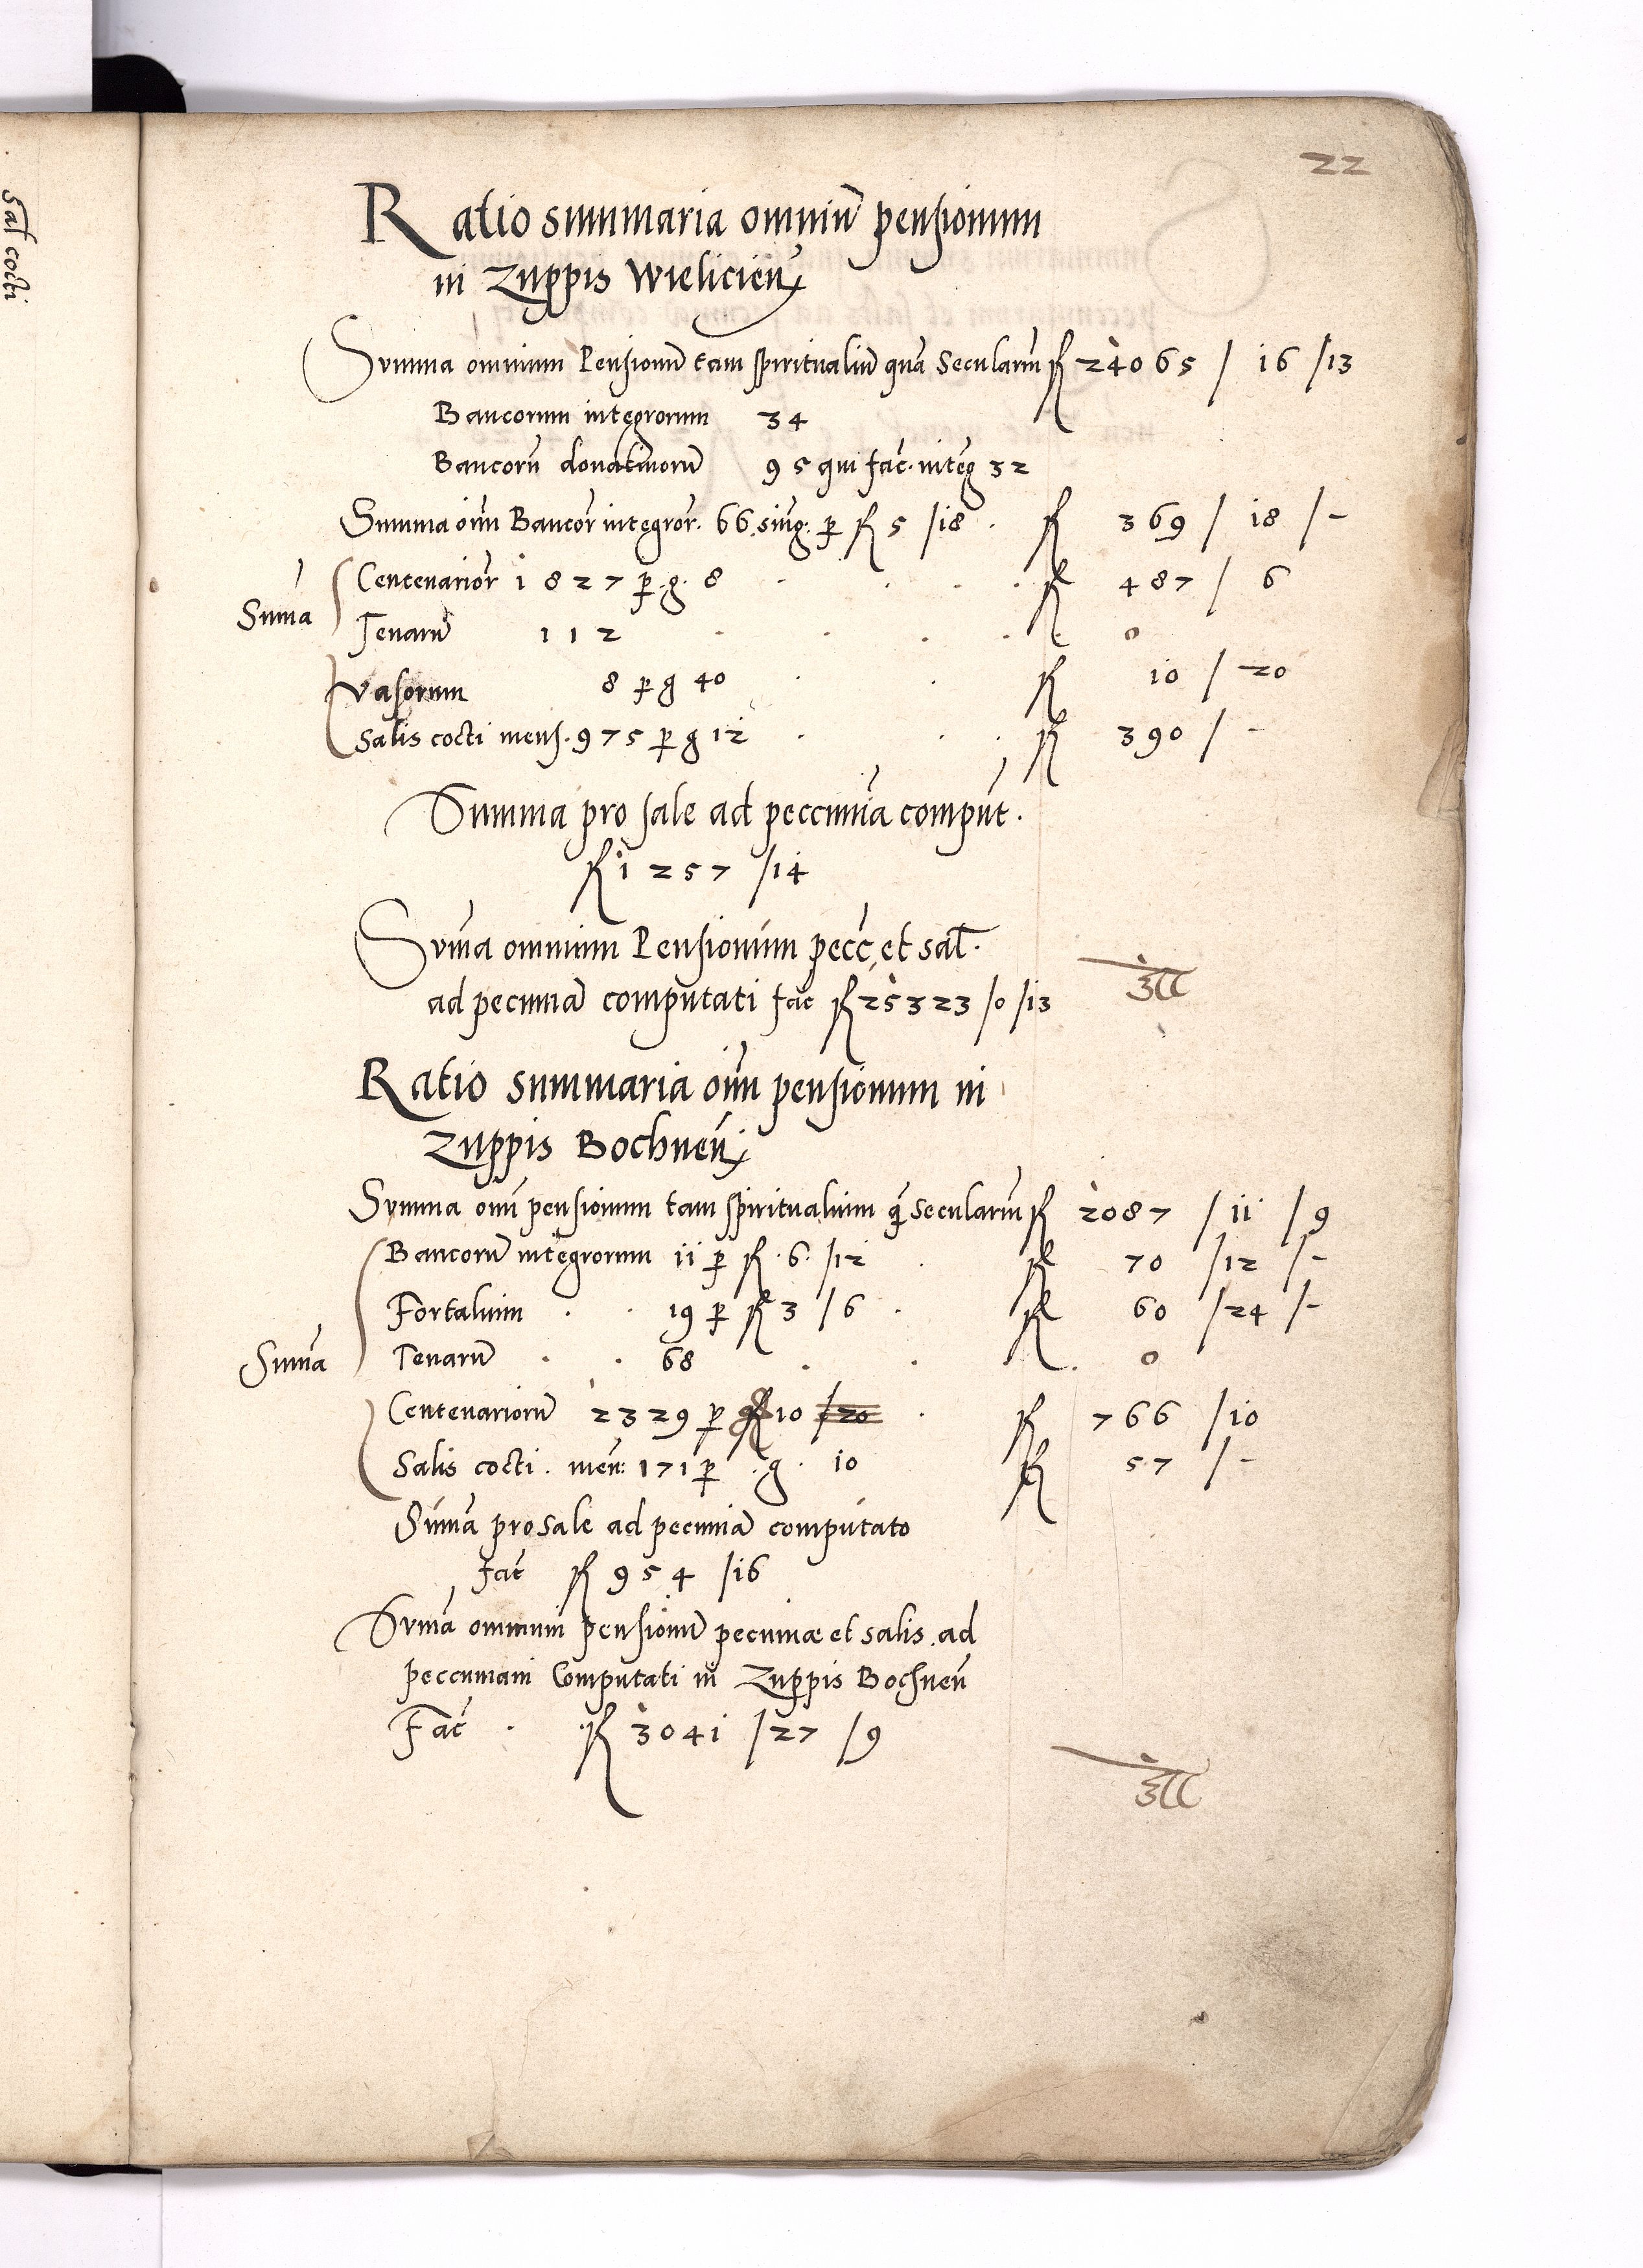 22
Ratio summaria omniū pensionum
in Zuppis Wielicień
Summa omnium Pensionū tam spiritualiū quā Seculariū fl 24065 / 16 / 13
Bancorum integrorum 34
Bancorū donativorū 95 qui fac. integ 32
Summa oīm Bancor integror. 66 sing. p fl 5 / 18 . fl 369 / 18 / -
Sum̄a
Centenarior 1827 p. g. 8 fl 487 / 6
Tenarū 112 . . . . fl 0
Vasorum 8 p g 40 . . fl 10 / 20
Salis cocti mens. 975 p g 12 . . . fl 390 / -
Summa pro sale ad peccuniā comput.
fl 1257 / 14
Sum̄a omnium Pensionum pecc et sal.
ad pecuniā computati fac fl 25323 / 0 / 13
Ratio summaria oīm pensionum in
Zuppis Bochneń
Summa oīm pensionum tam spiritualium q̄ Seculariū fl 2087 / 11 / 9
Bancorū integrorum 11 p fl . 6 . / 12 . fl 70 / 12 / -
Fortalium . . 19 p fl 3 / 6 . fl 60 / 24 / -
Sum̄a
Tenarū . . 68 . . fl . 0
Centenariorū 2329 p g 10 / 20 . fl 766 / 10
Salis cocti . meń: 171 p . g . 10 fl 57 / -
Sum̄a pro sale ad pecuniā computato
fac fl 954 / 16
Sum̄a omnium pensionū pecuniæ et salis ad
peccuniam Computati in Zuppis Bochneń
Fac . fl 3041 / 27 / 9
Sal cocti